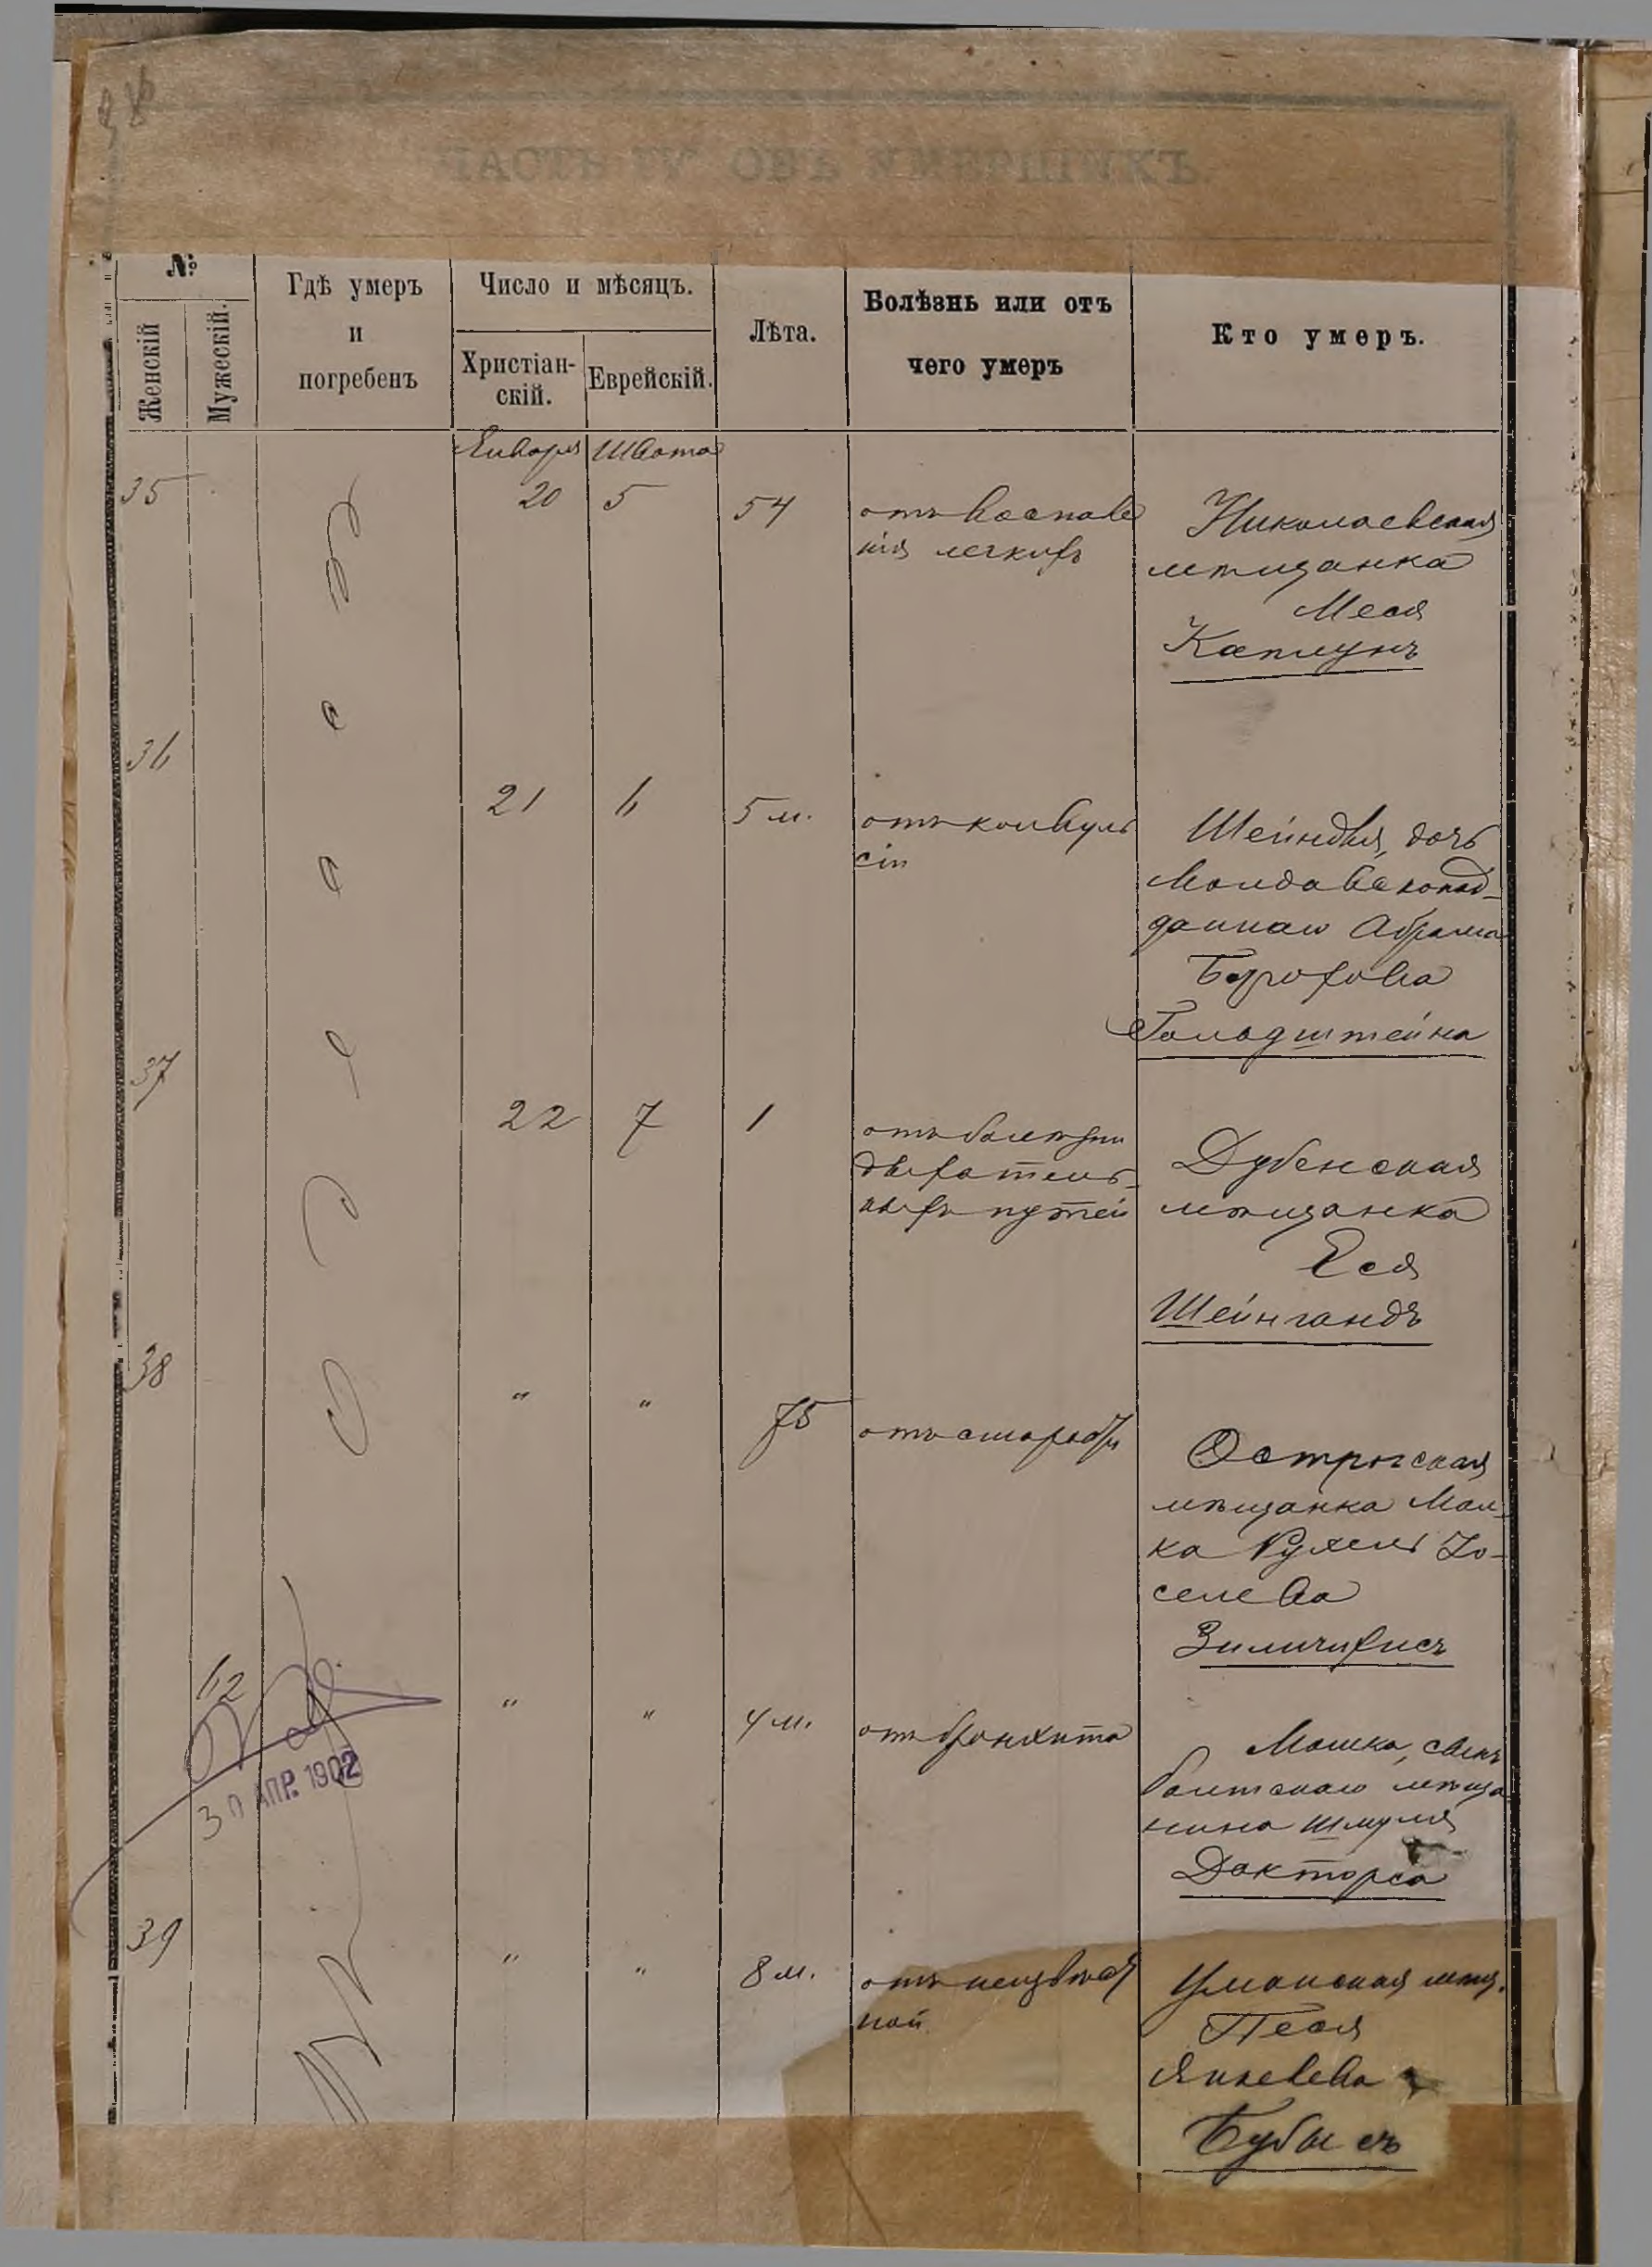 ЧАСТЬ IV ОБЪ УМЕРШИХЪ.
№
Женскій
Мужескій.
Гдѣ умеръ
и
погребенъ
Число и мѣсяцъ.
Христіан-
скій.
Еврейскій.
Лѣта.
Болѣзнь или отъ
чего умеръ
Кто умеръ.
Января Швата
35 20 5 54 отъ воспале
нія легкихъ
Николаевская
мѣщанка
Меся
Каплунъ
36 21 6 5 м. отъ конвуль
сіи
Шейндля, дочь
Молдавскопод-
даннаго Абрама
Борохова
Гольдштейна
37 22 7 1 отъ болѣзни
дыхатель-
ныхъ путей
Дубенская
мѣщанка
Еся
Шейнгандъ
38 " " 75 отъ старости
Острогская
мѣщанка Мал-
ка Рухель Іо-
селева
62 " " 4 м. отъ бронхита
Мошко, сынъ
балтскаго мѣща
нина Шмуля
Докторса
30 АПР. 1902
39 " " 8 м. отъ неизвѣст
ной
Уманская мѣщ.
Песя
Янкелева
Бубысъ